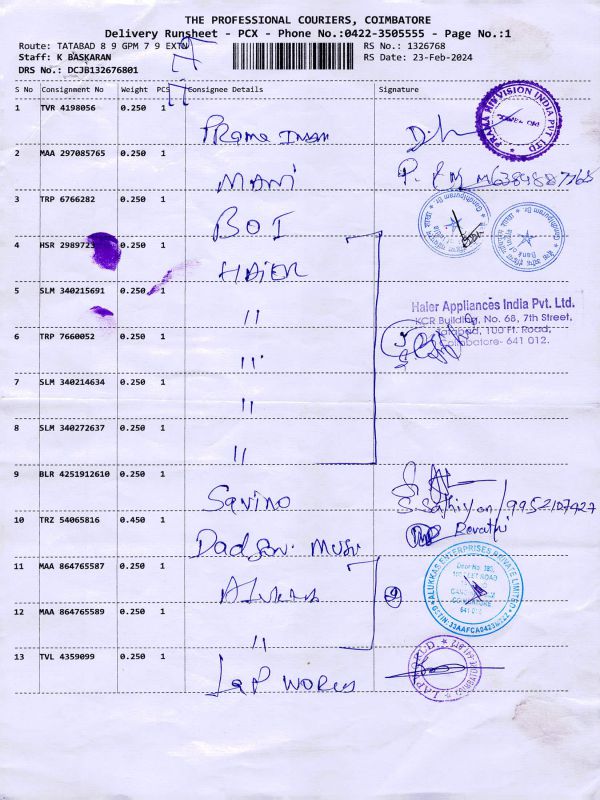 THE PROFESSIONAL COURIERS, COIMBATORE
Delivery Runsheet - PCX - Phone No.:0422-3505555 - Page No.:1
Route: TATABAD 8 9 GPM 7 9 EXTN
RS No.: 1326768
Staff: K BASKARAN
RS Date: 23-Feb-2024
DRS No.: DCJB132676801
S No Consignment No Weight PCS Consignee Details Signature
1 TVR 4198056 0.250 1
PRAMA HIKVISION INDIA PVT LTD
2 MAA 297085765 0.250 1 Mani
3 TRP 6766282 0.250 1 BOI
Bank of India
4 HSR 2989723 0.250 1 HAIER
5 SLM 340215691 0.250 1 "
Haier Appliances India Pvt. Ltd.
KCR Building, No. 68, 7th Street,
Tatabad, 100 Ft. Road,
Coimbatore- 641 012.
6 TRP 7660052 0.250 1 "
7 SLM 340214634 0.250 1 "
8 SLM 340272637 0.250 1 "
9 BLR 4251912610 0.250 1 Savino
S. Sathiyan / 9952107427
10 TRZ 54065816 0.450 1
Revathi
11 MAA 864765587 0.250 1
ALUKKAS ENTERPRISES PRIVATE LIMITED
12 MAA 864765589 0.250 1 "
13 TVL 4359099 0.250 1 LAP WORLD
LAP WORLD